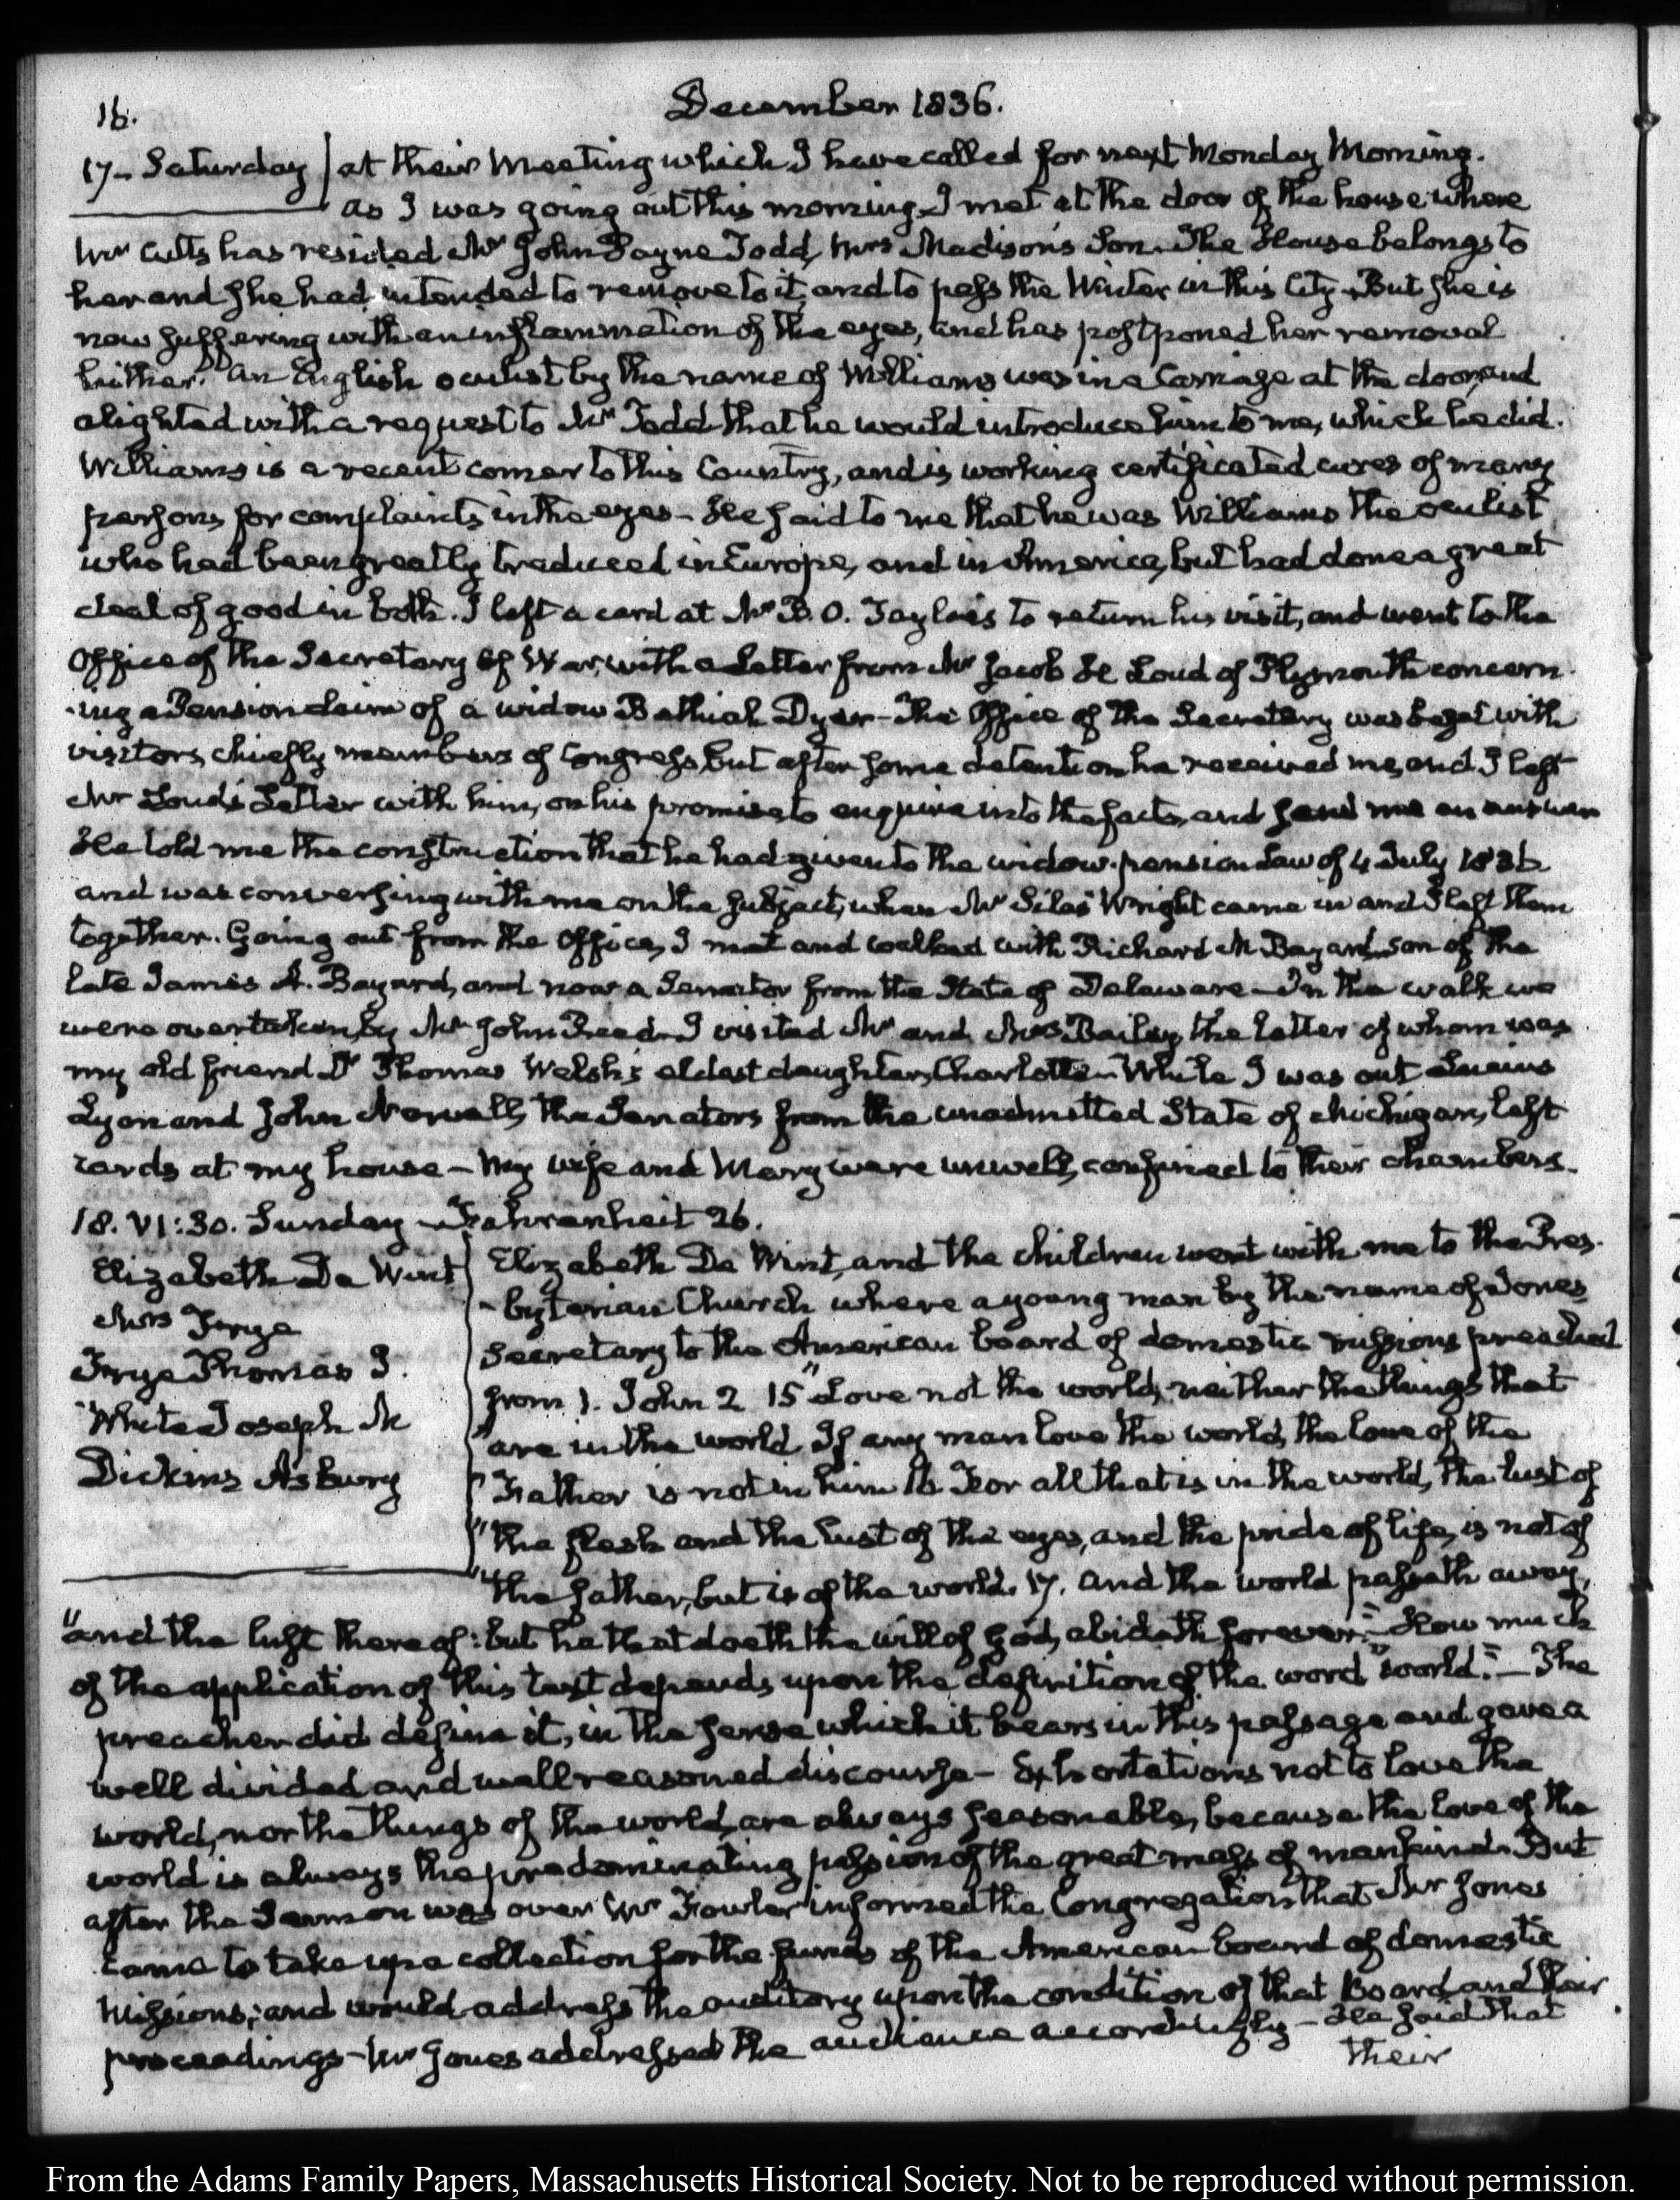 16.
December 1836.
17- Saturday at their Meeting which I have called for next Monday Morning.
As I was going out this morning I met at the door of the house where
Mr Cutts has resided Mr John Payne Todd, Mrs Madison's Son. The House belongs to
her and she had intended to remove to it, and to pass the Winter in this City. But she is
now suffering with an inflammation of the eyes, and has postponed her removal
hither. An English oculist by the name of Williams was in a Carriage at the door, and
alighted with a request to Mr Todd that he would introduce him to me, which he did.
Williams is a recent comer to this Country, and is working certificated cures of many
persons for complaints in the eyes - He said to me that he was Williams the oculist
who had been greatly traduced in Europe, and in America, but had done a great
deal of good in both. I left a card at Mr B. O. Tayloe's to return his visit, and went to the
Office of the Secretary of War, with a Letter from Mr Jacob H Loud of Plymouth concern-
-ing a Pension claim of a widow Bethiah Dyer - The Office of the Secretary was beset with
visitors, chiefly members of Congress, but after some detention he received me, and I left
Mr Loud's Letter with him, on his promise to enquire into the facts, and send me an answer
He told me the construction that he had given to the widow-pension Law of 4 July 1836
and was conversing with me on the subject, when Mr Silas Wright came in and I left them
together. Going out from the Office, I met and walked with Richard H Bayard, son of the
late James A. Bayard, and now a Senator from the State of Delaware - In the walk we
were overtaken, by Mr John Reed. I visited Mr and Mrs Bailey, the latter of whom was
my old friend Dr Thomas Welsh's eldest daughter, Charlotte - While I was out Lucius
Lyon and John Norvell, the Senators from the unadmitted State of Michigan, left
cards at my house - My wife and Mary were unwell, confined to their chambers.
18. VI:30. Sunday - Fahrenheit 26.
Elizabeth De Wint
Mrs Frye
Frye Thomas J.
White Joseph M
Dickins Asbury
Elizabeth De Wint, and the children went with me to the Pres-
-byterian Church where a young man by the name of Jones
Secretary to the American board of domestic missions preached
from 1. John 2 15 "Love not the world, neither the things that
"are in the world. If any man love the world, the love of the
"Father is not in him 16 For all that is in the world, the lust of
"the flesh and the lust of the eyes, and the pride of life, is not of
"the father, but is of the world. 17. And the world passeth away,
"and the lust thereof: but he that doeth the will of God, abideth forever." - How much
of the application of this text depends upon the definition of the word "world." - The
preacher did define it, in the sense which it bears in this passage and gave a
well divided and well reasoned discourse - Exhortations not to love the
world, nor the things of the world, are always seasonable, because the love of the
world is always the predominating passion of the great mass of mankind. But
after the Sermon was over Mr Fowler informed the Congregation that Mr Jones
came to take up a collection for the funds of the American board of domestic
Missions; and would address the auditory upon the condition of that Board and their
proceedings - Mr Jones addressed the audience accordingly - He said that
their
From the Adams Family Papers, Massachusetts Historical Society. Not to be reproduced without permission.